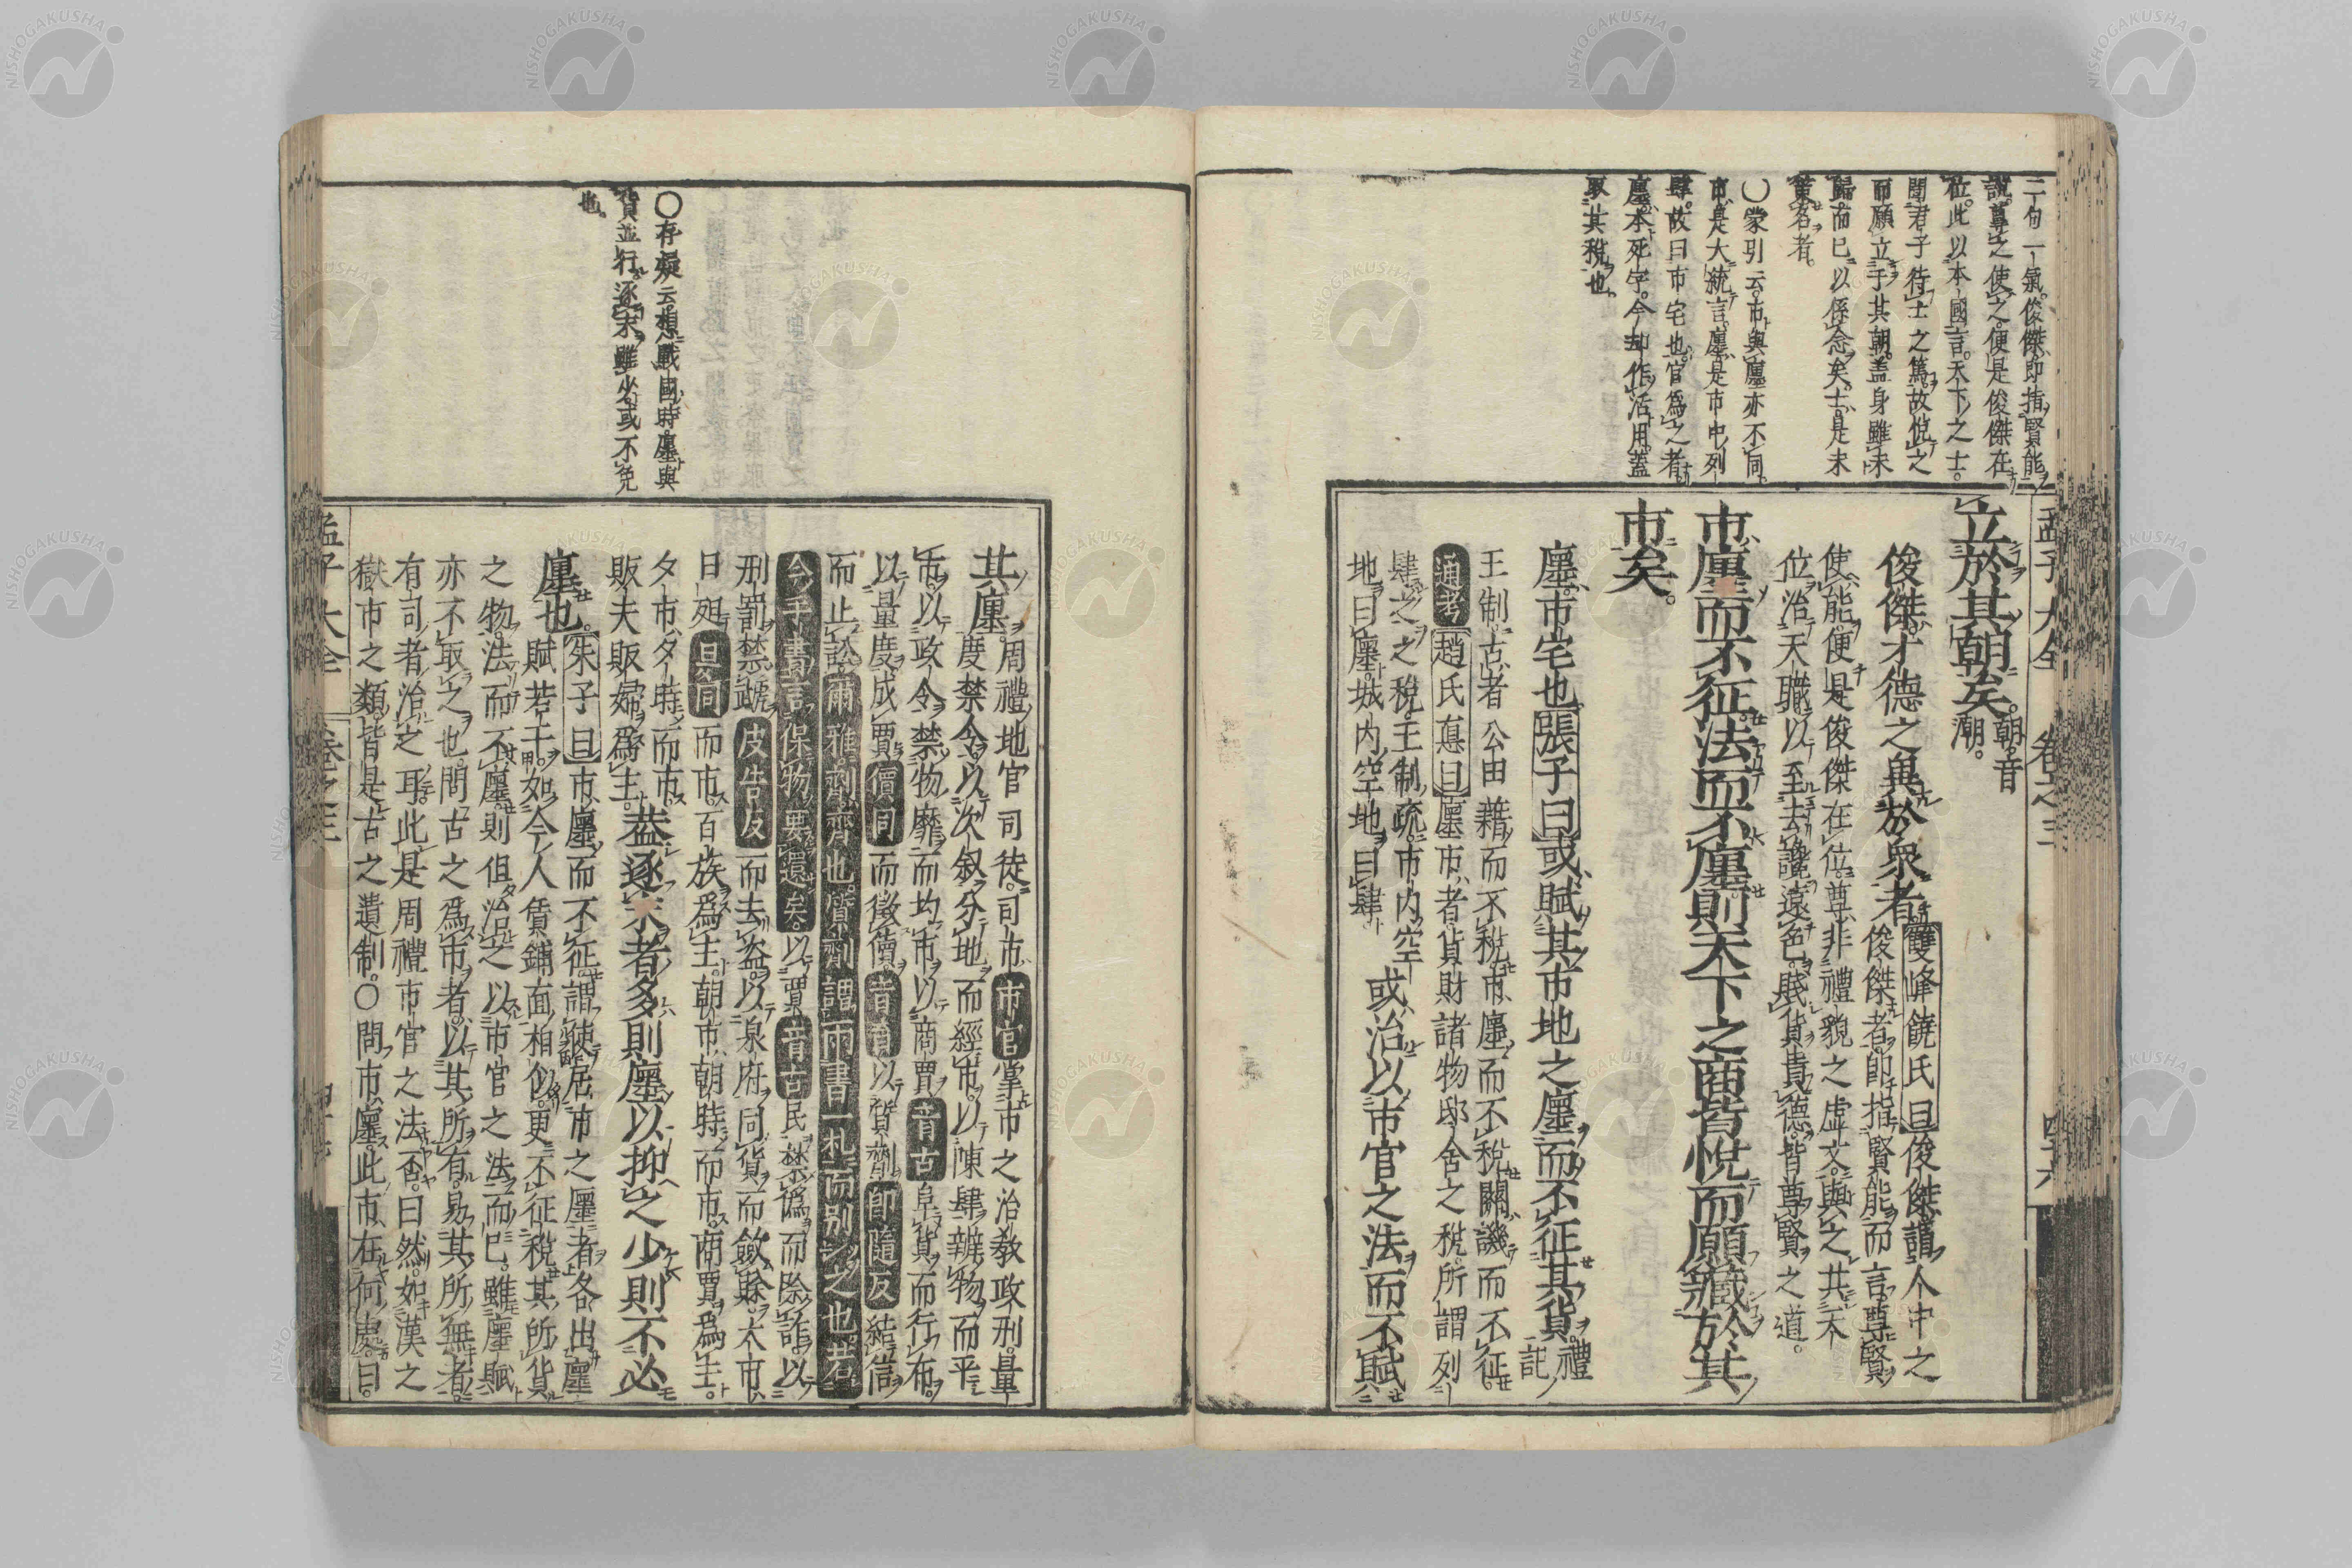 二句一氣。俊傑即指賢能
說。尊之使之。便是俊傑在
位。此以本國言。天下之士。
聞君子待士之篤。故悅之
而願立于其朝。蓋身雖未
歸而已以係念矣。士是未
策名者。
○蒙引云。市與廛亦不同。
市是大統言。廛是市中列
肆。故曰市宅也。官爲之者。
廛本死字。今却作活用。蓋
取其稅也。
孟子大全 卷之三 四十六
立於其朝矣。朝音
潮。
俊傑才德之異於衆者。雙峰饒氏曰俊傑謂人中之
俊傑者。即指賢能而言。尊賢
使能。便是俊傑在位。尊非禮貌之虛文。與之共天
位治天職。以至去讒遠色。賤貨貴德。皆尊賢之道。
市廛而不征。法而不廛。則天下之商皆悅而願藏於其
市矣。
廛市宅也。張子曰或賦其市地之廛。而不征其貨。禮
記
王制古者公田藉而不稅。市廛而不稅。關譏而不征。
通考趙氏悳曰廛市者。貨財諸物邸舍之稅。所謂列
肆之之稅。王制疏市內空
地曰廛。城內空地曰肆
或治以市官之法。而不賦
其廛。周禮地官司徒。司市市官掌市之治敎政刑。量
度禁令。以次叙分地而經市。以陳肆辨物而平
市。以政令禁物靡而均市。以商賈音古阜貨而行布。
以量度成賈價同而徵儥音育以質劑即隨反結信
而止訟。爾雅。劑齊也。質劑謂兩書一札而别之也。若
今手書言保物要還矣。以賈音古民禁僞而除詐。以
刑罰禁虣皮告反而去盜。以泉府同貨而斂賖。大市
日昃旦同而市。百族爲主。朝市朝時而市。商賈爲主。
夕市夕時而市。
販夫販婦爲主。蓋逐末者多則廛以抑之。少則不必
廛也。朱子曰市廛而不征。謂使居市之廛者各出廛
賦若干。如今人賃鋪面相似。更不征稅其所貨
之物。法而不廛。則但治之以市官之法而已。雖廛賦
亦不取之也。問古之爲市者。以其所有。易其所無者。
有司者治之耳。此是周禮市官之法否。曰然。如漢之
獄市之類。皆是古之遺制。○問市廛。此市在何處。曰。
○存疑云。想戰國時。廛與
貨並行。逐末雖少。或不免
也。
孟子大全 卷之三